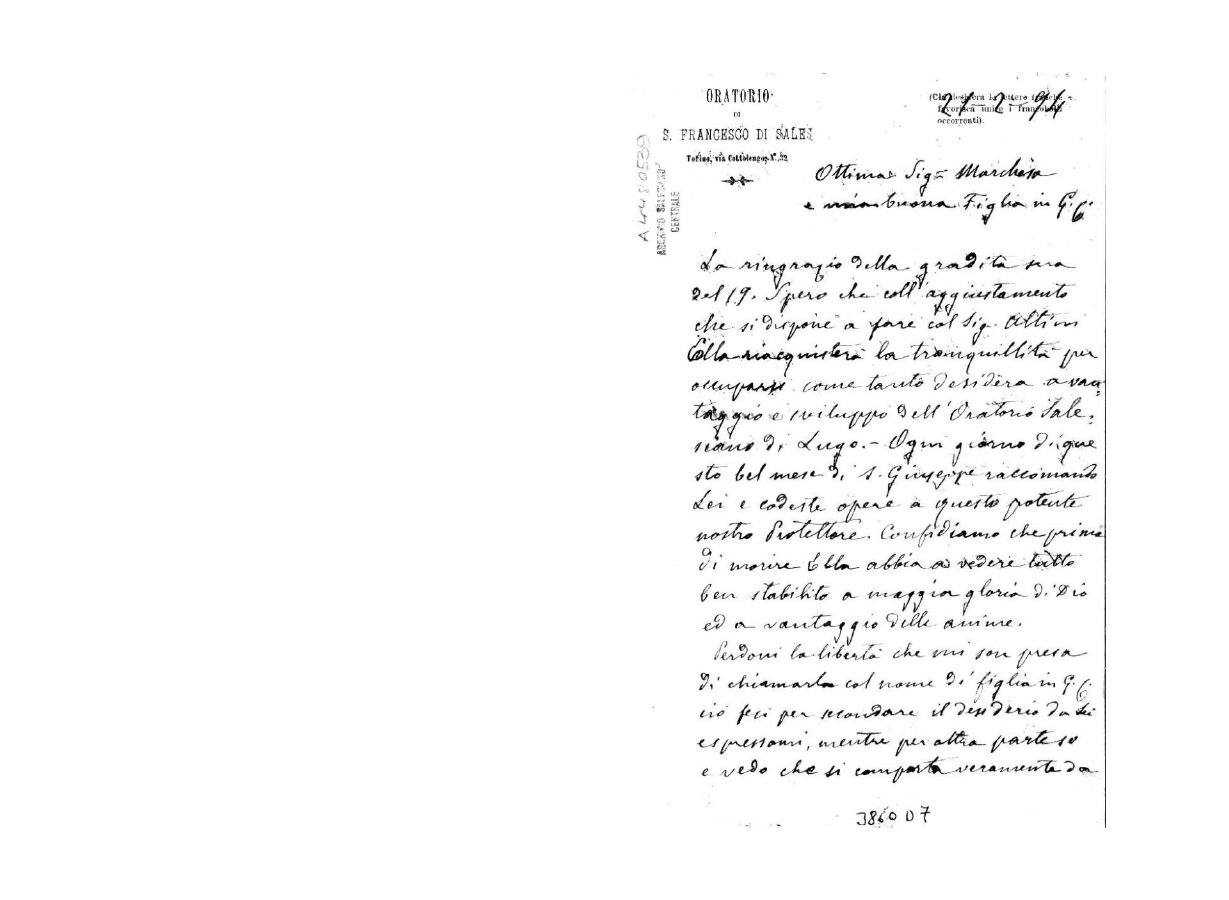 ORATORIO
DI
S. FRANCESCO DI SALES
Torino, via Cottolengo, N. 32
(Chi desidera le lettere
favorisca unire i francobolli
occorrenti).
21-2-94
A4480539
ARCHIVIO SALESIANO
CENTRALE
Ottima Sigª Marchesa
e mia buona Figlia in G. C.
La ringrazio della gradita sua
del 19. Spero che coll'aggiustamento
che si dispone a fare col Sig.
Ella riacquisterà la tranquillità per
occuparsi come tanto desidera a van=
taggio e sviluppo dell'Oratorio Sale=
siano di Lugo.- Ogni giorno di que
sto bel mese di S. Giuseppe raccomando
Lei e codeste opere a questo potente
nostro Protettore. Confidiamo che prima
di morire Ella abbia a vedere tutto
ben stabilito a maggior gloria di Dio
ed a vantaggio delle anime.
Perdoni la libertà che mi son presa
di chiamarla col nome di figlia in G. C.
ciò feci per secondare il desiderio da Lei
espressomi, mentre per altra parte so
e vedo che si comporta veramente da
3860 D7